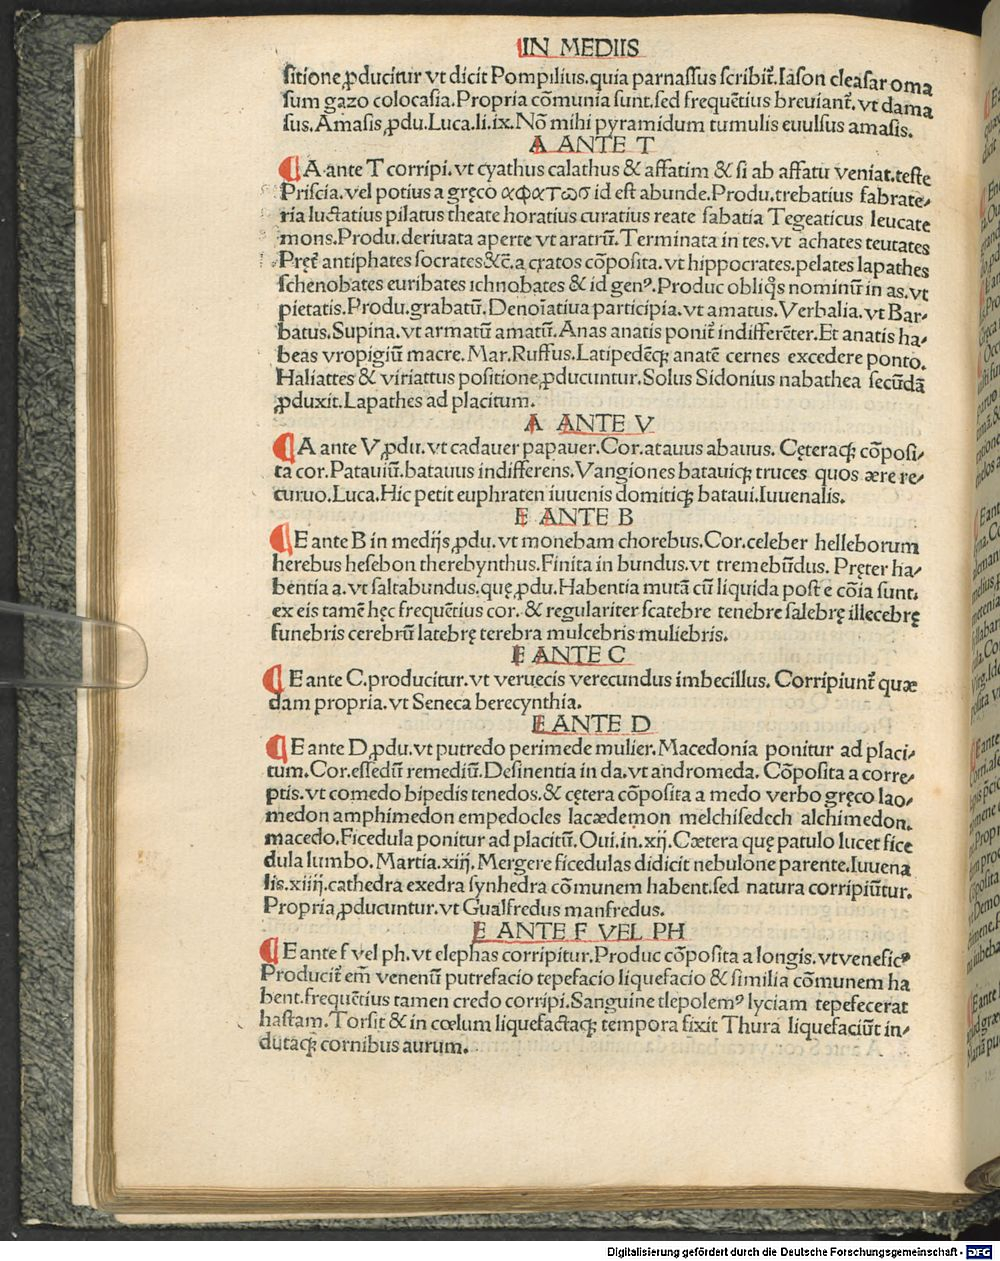 IN MEDIIS
sitione ꝓducitur vt dicit Pompilius.quia parnassus scribit̃.Iason cleasar oma
sum gazo colocasia.Propria cōmunia sunt.sed frequētius breuiant̃. vt dama
sus.Amasis ꝓdu.Luca.li.ix.Nō mihi pyramidum tumulis euulsus amasis.
A ANTE T
A ante T corripi. vt cyathus calathus & affatim & si ab affatu veniat.teste
Priscia.vel potius a gręco αφατωσ id est abunde.Produ.trebatius fabrate-
ria luctatius pilatus theate horatius curatius reate sabatia Tegeaticus leucate
mons.Produ.deriuata aperte vt aratrū.Terminata in tes.vt achates teutates
Pręt̃ antiphates socrates &c̃.a cratos cōposita.vt hippocrates.pelates lapathes
schenobates euribates ichnobates & id genꝰ.Produc obliq̃s nominū in as.vt
pietatis.Produ.grabatū.Denoiatiua participia.vt amatus.Verbalia.vt Bar-
batus.Supina.vt armatū amatū.Anas anatis ponit̃ indifferēter.Et anatis ha-
beas vropigiū macre.Mar.Ruffus.Latipedēqꝫ anatē cernes excedere ponto.
Haliattes & viriattus positione ꝓducuntur.Solus Sidonius nabathea secūdā
ꝓduxit.Lapathes ad placitum.
A ANTE V
A ante V ꝓdu.vt cadauer papauer.Cor.atauus abauus. Cęteraqꝫ cōposi-
ta cor.Patauiū.batauus indifferens.Vangiones batauiqꝫ truces quos ære re-
curuo.Luca.Hic petit euphraten iuuenis domitiqꝫ bataui.Iuuenalis.
E ANTE B
E ante B in medijs ꝓdu.vt monebam chorebus.Cor.celeber helleborum
herebus hesebon therebynthus.Finita in bundus.vt tremebūdus. Pręter ha-
bentia a.vt saltabundus.quę ꝓdu.Habentia mutā cū liquida post e cōia sunt.
ex eis tamē hęc frequētius cor. & regulariter scatebre tenebre salebrę illecebrę
funebris cerebrū latebrę terebra mulcebris muliebris.
E ANTE C
E ante C.producitur.vt veruecis verecundus imbecillus. Corripiunt̃ quæ
dam propria.vt Seneca berecynthia.
E ANTE D
E ante D ꝓdu.vt putredo perimede mulier.Macedonia ponitur ad placi-
tum.Cor.essedū remediū.Desinentia in da.vt andromeda. Cōposita a corre-
ptis.vt comedo bipedis tenedos.& cętera cōposita a medo verbo gręco lao-
medon amphimedon empedocles lacædemon melchisedech alchimedon.
macedo.Ficedula ponitur ad placitū.Oui.in.xij.Cætera quę patulo lucet fice
dula lumbo.Martia.xiij.Mergere ficedulas didicit nebulone parente.Iuuena
lis.xiiij.cathedra exedra synhedra cōmunem habent.sed natura corripiūtur.
Propria ꝓducuntur.vt Gualfredus manfredus.
E ANTE F VEL PH
E ante f vel ph.vt elephas corripitur.Produc cōposita a longis.vt veneficꝰ
Producit̃ em̄ venenū putrefacio tepefacio liquefacio & similia cōmunem ha
bent.frequētius tamen credo corripi.Sanguine tlepolemꝰ lyciam tepefecerat
hastam.Torsit & in cœlum liquefactaqꝫ tempora fixit Thura liquefaciūt in-
dutaqꝫ cornibus aurum.
Digitalisierung gefördert durch die Deutsche Forschungsgemeinschaft - DFG